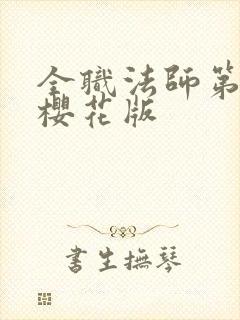 全職法師第
櫻花版
書生撫琴